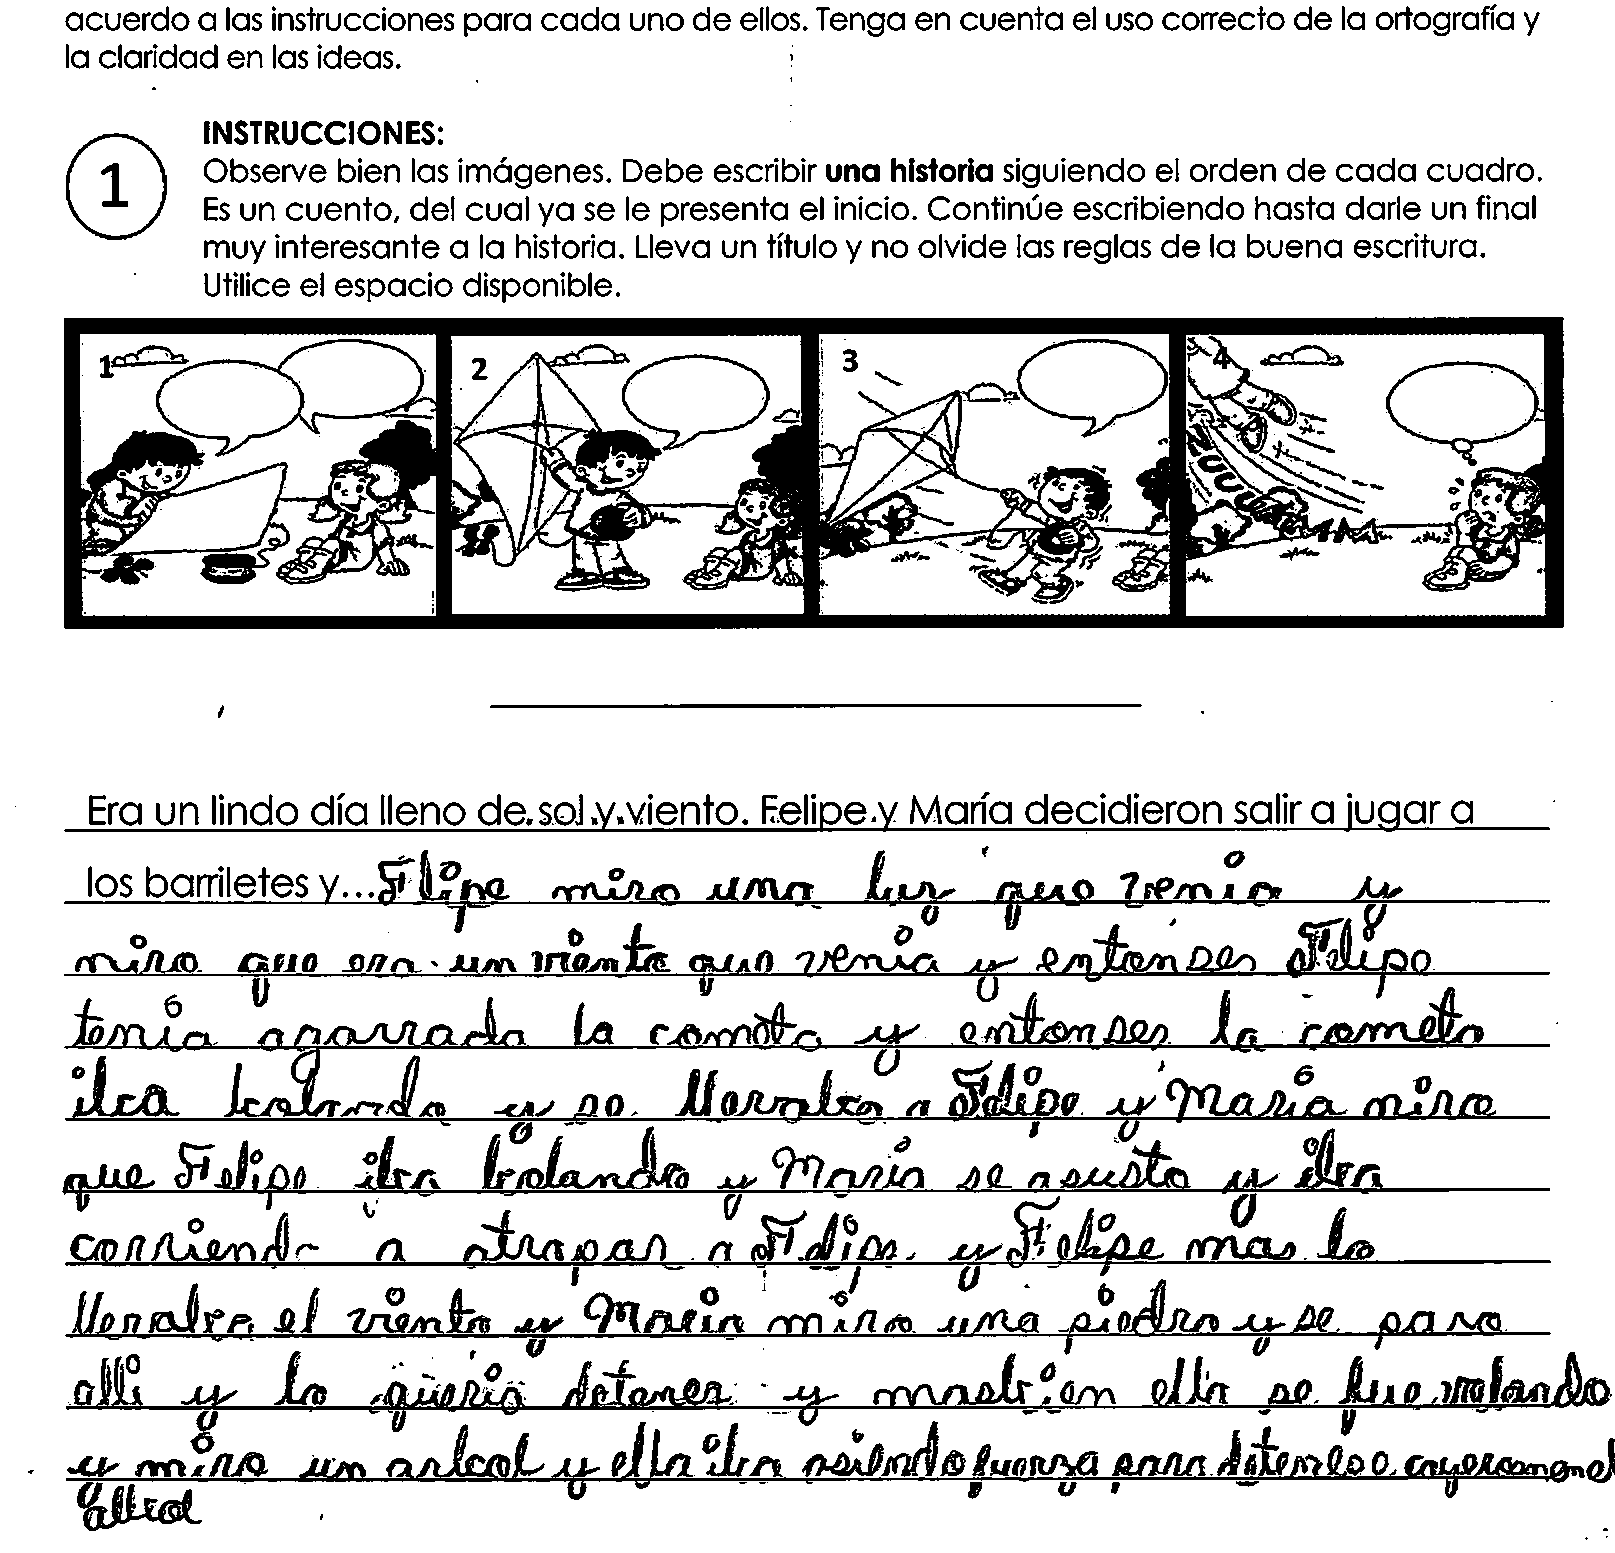 acuerdo a las instrucciones para cada uno de ellos. Tenga en cuenta el uso correcto de la ortografía y
la claridad en las ideas.
INSTRUCCIONES:
1
Observe bien las imágenes. Debe escribir una historia siguiendo el orden de cada cuadro.
Es un cuento, del cual ya se le presenta el inicio. Continúe escribiendo hasta darle un final
muy interesante a la historia. Lleva un título y no olvide las reglas de la buena escritura.
Utilice el espacio disponible.
1 2 3 4
ZUUUUM
Era un lindo día lleno de sol y viento. Felipe y María decidieron salir a jugar a
los barriletes y... Flipe miro una luz que venia y
miro que era un viento que venia y entonses Felipe
tenia agarrada la cometa y entonses la cometa
iba bolando y se llevaba a Felipe y Maria miro
que Felipe iba bolando y Maria se asusto y iba
corriendo a atrapar a Felipe y Felipe mas lo
llevaba el viento y Maria miro una piedra y se paro
alli y lo queria detener y ella se fue volando
y miro un arbol y ella iba asiendo fuerza para cayeron en el
albol